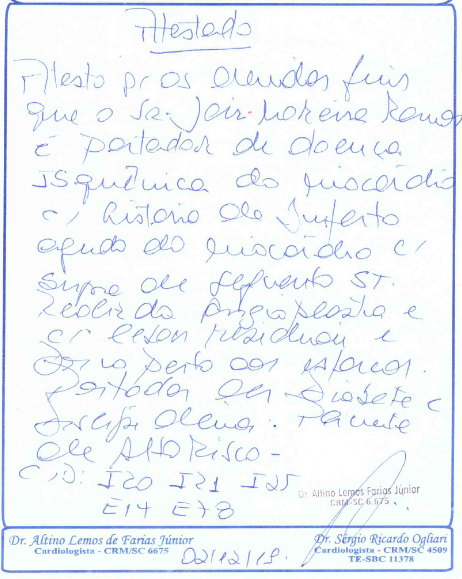 Atestado
Atesto p/ os devidos fins
que o Sr. Jair Moreira Ramos
é portador de doença
isquêmica do miocárdio
c/ história de Infarto
agudo do miocárdio c/
supra de segmento ST.
Realizado Angioplastia e
c/ lesão residual e
aos esforços.
Portador de Diabete e
Paciente
de Alto Risco -
CID: I20 I21 I25
E14 E78
Dr. Altino Lemos Farias Júnior
CRM-SC 6.675
Dr. Altino Lemos de Farias Júnior
Cardiologista - CRM/SC 6675
02/12/19.
Dr. Sérgio Ricardo Ogliari
Cardiologista - CRM/SC 4509
TE-SBC 11378